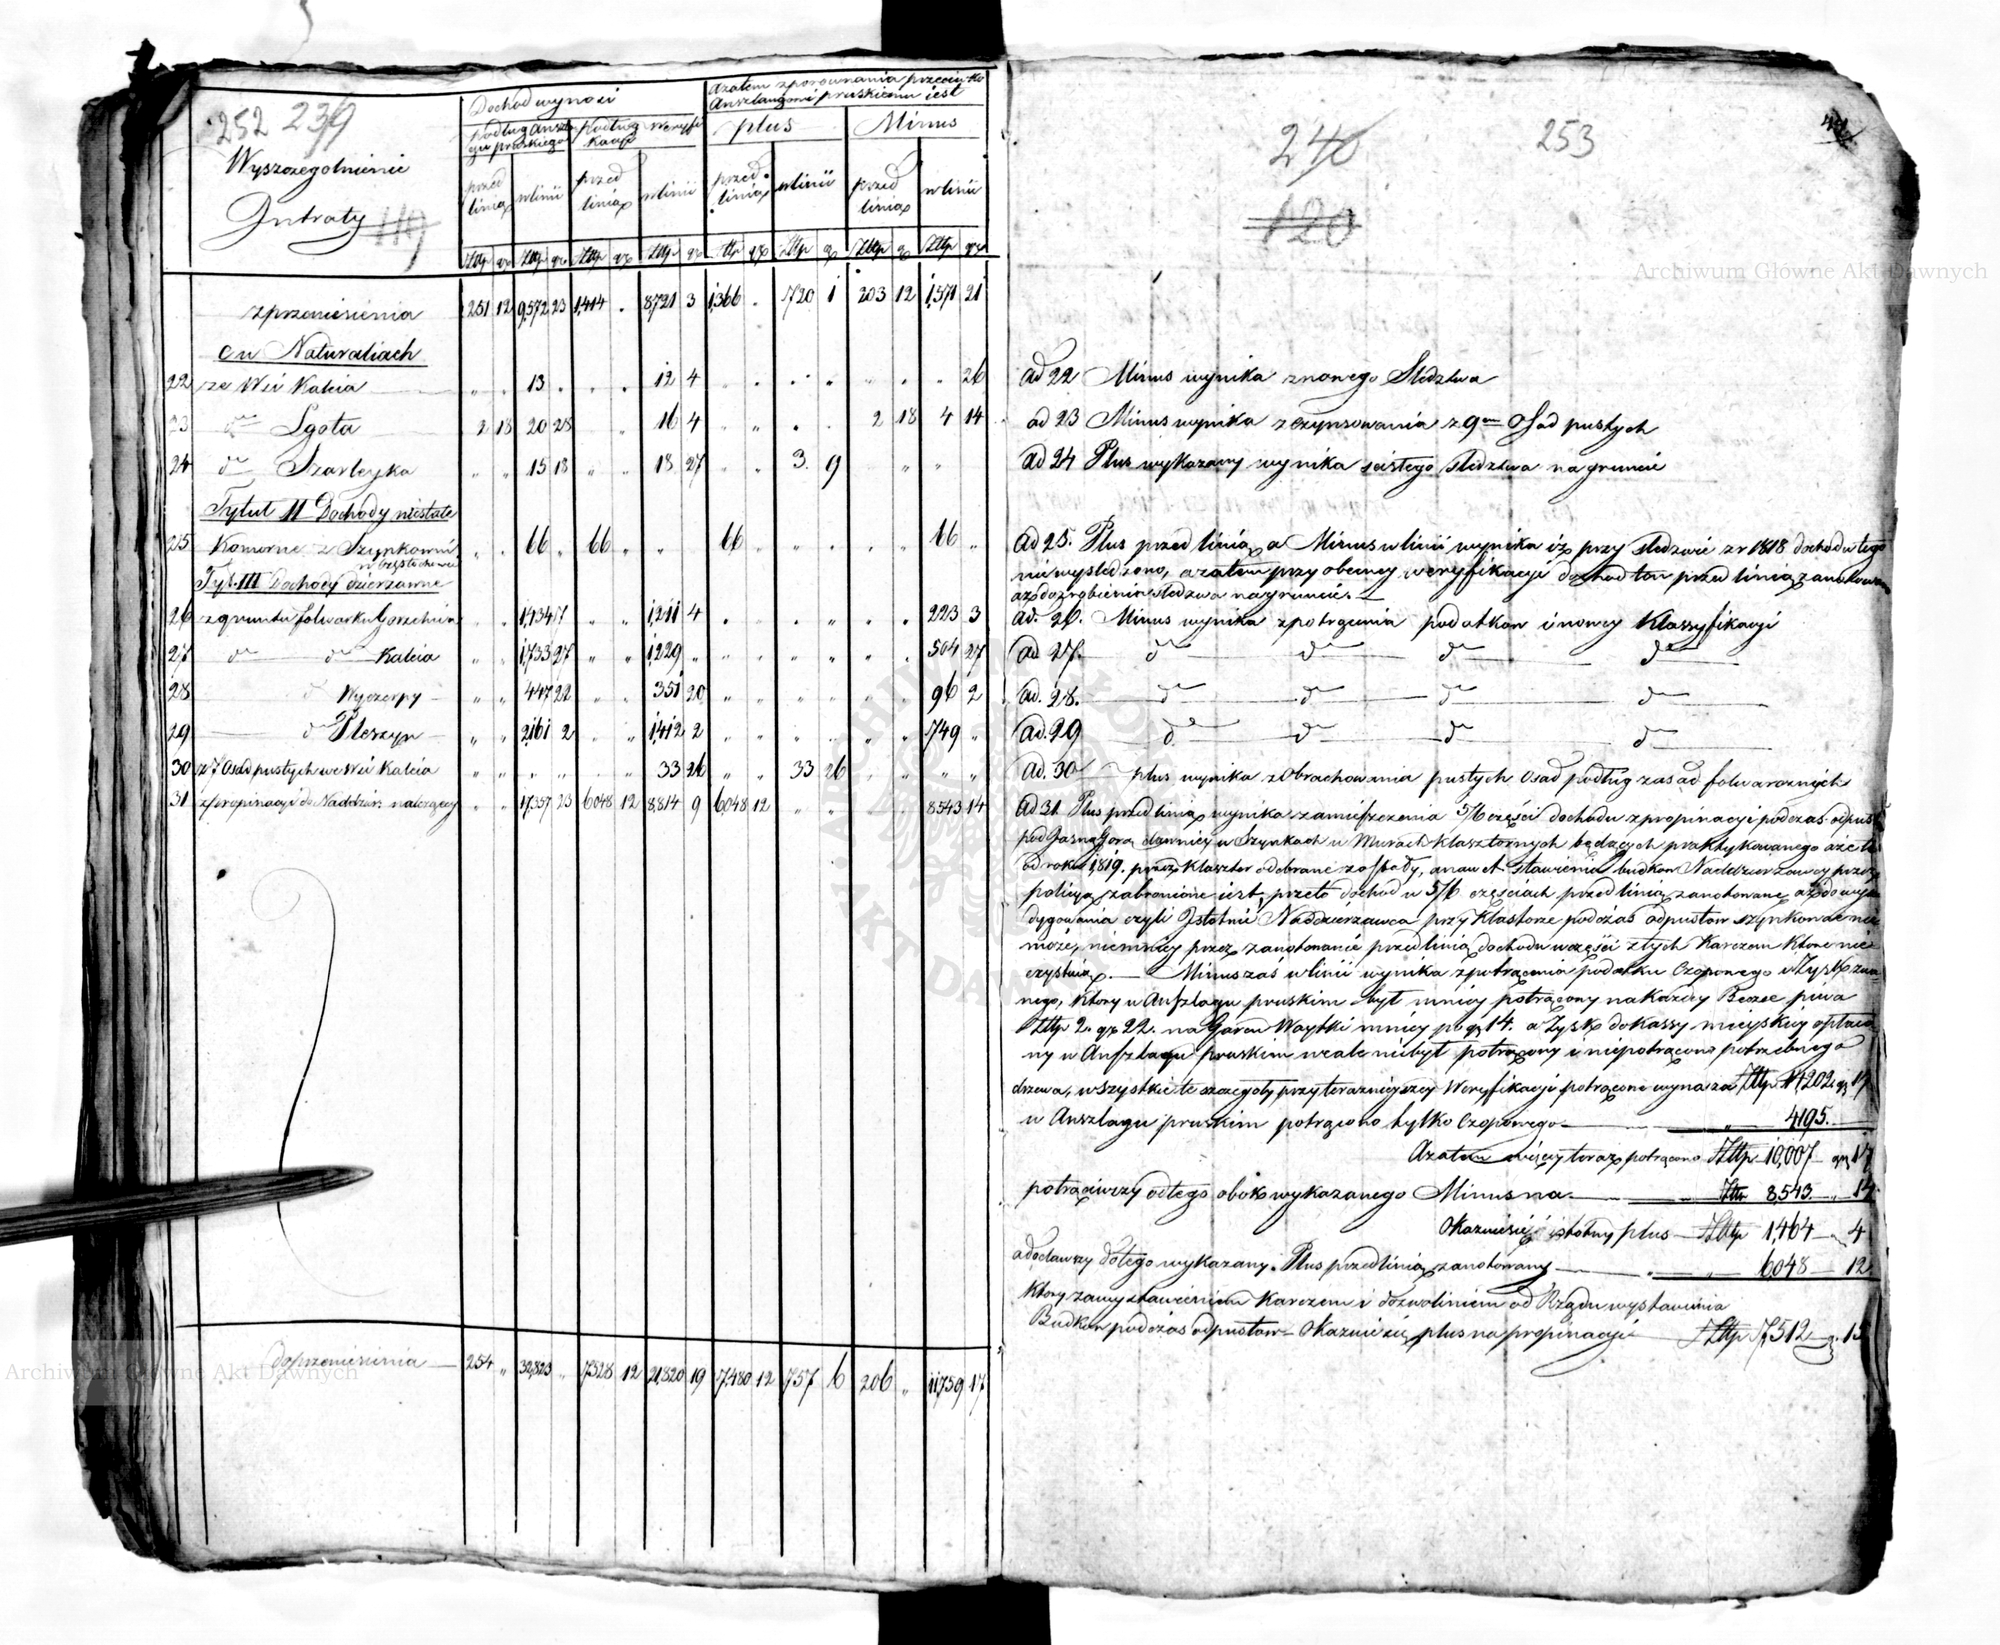 252 239
Wyszczegolnienie
Intraty 119
Dochod wynosi
Azatem zporownania przeciwko
Anszlagowi pruskiemu iest
podług Ansz-
lagu pruskiego
podług Weryfi-
kacyi
plus
Minus
przed linią
w linii
przed linią
w linii
przed linią
w linii
przed linią
w linii
Złtp gr Złtp gr Złtp gr Złtp gr Złtp gr Złtp gr Złtp gr Złtp gr
zprzeniesienia 251 12 9,572 23 1,414 . 8,721 3 1,366 . 720 1 203 12 1,571 21
c w Naturaliach
22 ze Wsi Kaleia " " 13 . . . 12 4 . . . " " . " 26
23 do Lgota 2 18 20 28 " 16 4 " " . . 2 18 4 14
24 do Szarleyka " " 15 18 " " 18 27 " " 3. 9 " "
Tytuł II Dochody niestałe
25 Komorne z Szynkowni . . 66 " 66 " " 66 " " " " " 66 "
w Częstochowie
Tyt. III Dochody dzierzawne
26 zgruntu folwarku Gorzelnia " " 1,434 7 " " 1,211 4 " " " " " . 223 3
27 do do Kaleia " " 1,733 27 " " 1,229 " " " " " " . 504 27
28 d Wyczerpy " " 447 22 " " 351 20 " " " " " " 96 2
29 do Pleszyn " " 2,161 2 " " 1,412 2 " " " " " " 749 "
30 z 7 Osad pustych we Wsi Kaleia " " " " " " 33 26 " " 33 26 " " " "
31 zpropinacyi do Naddzier. należącey " " 17,357 23 6048 12 8,814 9 6,048 12 " " " " 8543 14
doprzeniesienia 254 " 32,823 " 7,528 12 21,820 19 7,480 12 757 6 206 " 11,759 17
240 253
120
ad 22 Minus wynika znowego Sledztwa
ad 23 Minus wynika zczynszowania z 9ciu Osad pustych
ad 24 Plus wykazany wynika scisłego sledztwa na gruncie
ad 25. Plus przed linią a Minus w linii wynika iż przy sledzwie z r 1818 dochodu tego
nie wysledzono, azatem przy obecney weryfikacyi dochod ten przed linią zanotowano
aż do zrobienia sledztwa na gruncie.
ad. 26. Minus wynika zpotrącenia podatkow i nowey Klassyfikacyi
ad. 27. do do do do
ad. 28. do do do do
ad. 29 do do do do
ad. 30 plus wynika zObrachowania pustych Osad podług zasad folwarcznych
ad 31. Plus przed linią wynika zamieszczenia 5/6 części dochodu zpropinacyi podczas odpust.
pod Jasną Gorą dawniey w Szynkach w Murach Klasztornych będących praktykowanego a że te
od roku 1,819. przez Klasztor odebrane zostały, a nawet stawienia budkow Naddzierzawcy przez
policyą zabronione iest, przeto dochod w 5/6 częsciach przed linią zanotowano, aż do wyin-
dygowania czyli Istotnie Naddzierzawca przy Klastorze podczas odpustow szynkowac nie
może, niemniey przez zanotowanie przed linią dochodu w części ztych Karczem ktore nie
czystnią. — Minus zaś w linii wynika zpotrącenia podatku Czopowego i Zysk zwa-
nego, ktory w Anszlagu pruskim był mniey potrącony na kazdey Beczce piwa
Złtp 2. gr 22. na Garcu Wodki mniey po gr 14. a Zysk do kassy mieyskiey opłaca-
ny w Anszlagu pruskim wcale niebył potrącony i niepotrącono potrzebnego
drzewa, wszystkie te szczegoły przy terażnieyszey Weryfikacyi potrącone wynoszą Złtp 14,202 gr 17
w Anszlagu pruskim potrącono tylko Czopowego " 4195.
Azatem więcey teraz potrącono Złtp 10,007 gr 17
potrąciwszy od tego obok wykazanego Minus na Złtp 8,543 " 14
Okazuie się istotny plus Złtp 1,464 " 4
a dodawszy do tego wykazany Plus przed linią zanotowany " 6048 12
Ktory zawystawieniem Karczem i dozwoliniem od Rządu wystawienia
Budkow podczas odpustow Okazuie się plus na propinacyi Złtp 7,512 g. 15
Archiwum Główne Akt Dawnych
Archiwum Główne Akt Dawnych